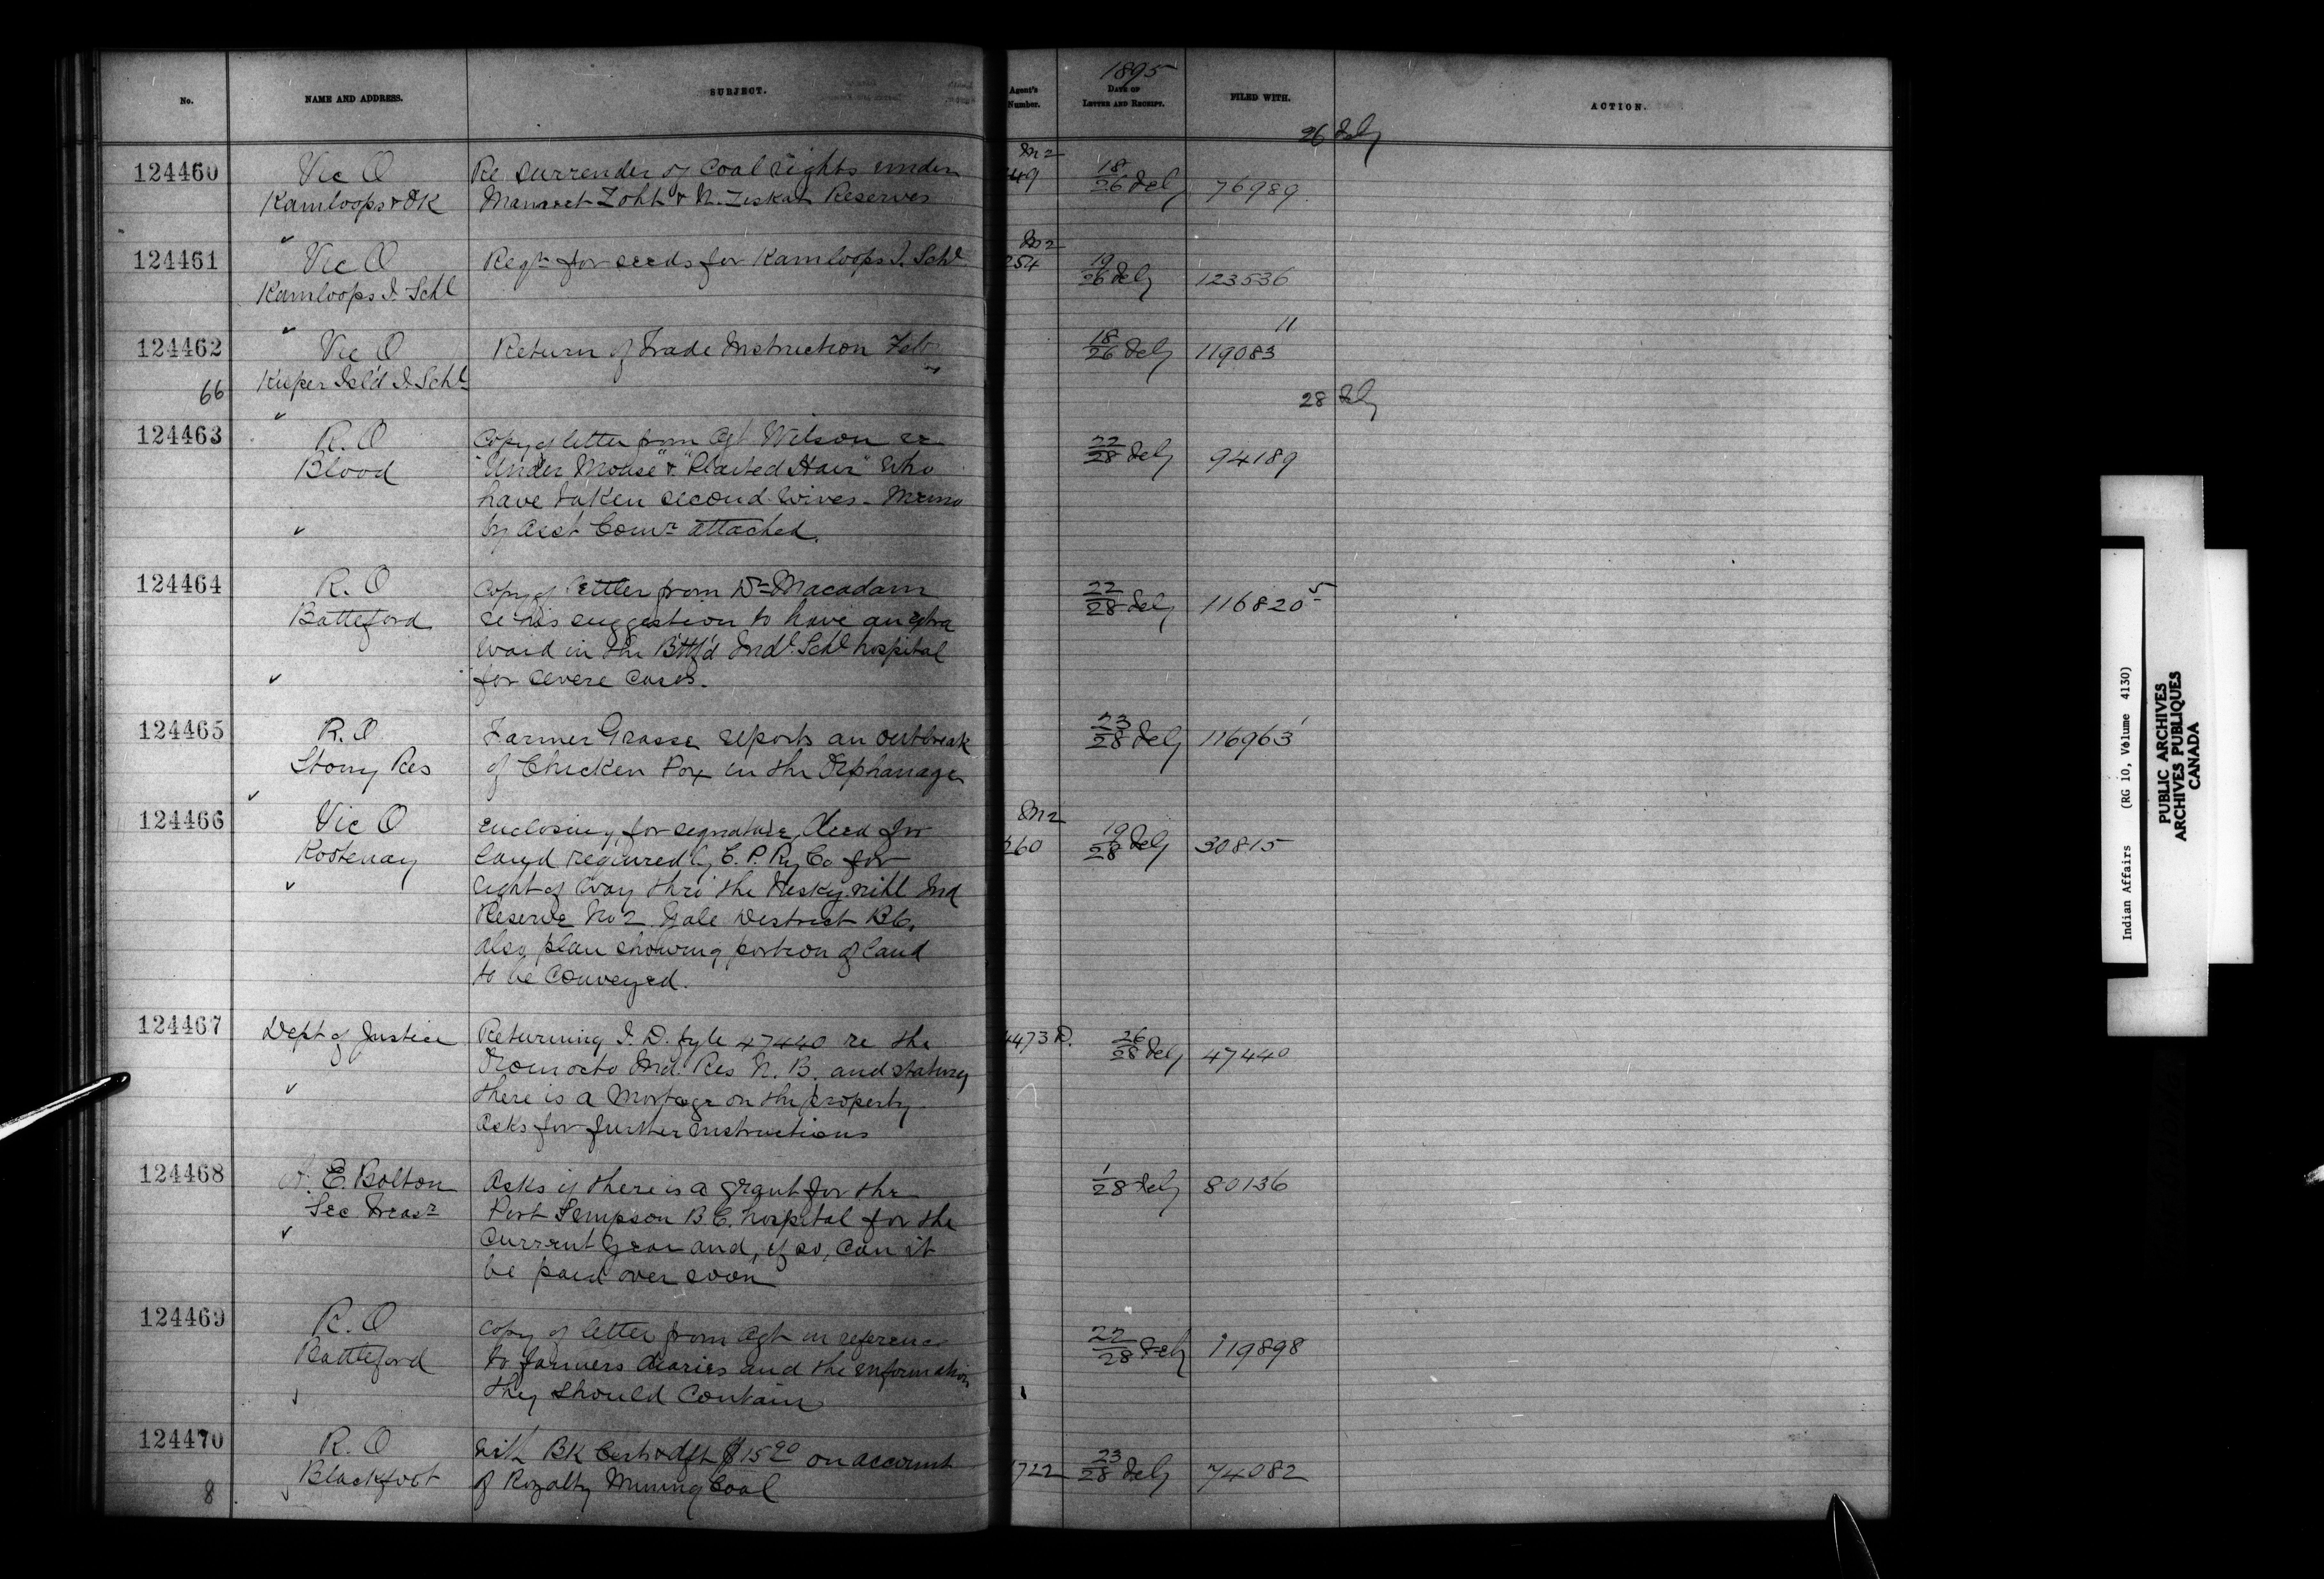 No. NAME AND ADDRESS. SUBJECT. Agent's Number. 1895 DATE OF LETTER AND RECEIPT. FILED WITH. ACTION.
26 Feby
124460 Vic O Re surrender of Coal rights under M2 49 18/26 Feby 76989
Kamloops & OK Reserves
124461 Vic O Reqn for seeds for Kamloops I. Schl M2 254 19/26 Feby 123536
Kamloops I. Schl
124462 Vic O Return of Trade Instruction Feb 18/26 Feby 119083 11
66 Kuper Isl'd I. Schl
28 Feby
124463 R. O Copy of letter from Agt Wilson re 22/28 Feby 94189
Blood "Under Mouse" & "Plaited Hair" who
have taken second wives - Memo
by Asst Comr attached.
124464 R. O Copy of letter from Dr Macadam 22/28 Feby 116820 5
Battleford re his suggestion to have an extra
ward in the Bttf'd Indl. Schl hospital
for severe cases.
124465 R. O Farmer Grasse reports an outbreak 23/28 Feby 116963 1
Stony Res of Chicken Pox in the Orphanage
124466 Vic O Enclosing, for signature, Deed for M2 260 19/28 Feby 30815
Kootenay land required by C. P. Ry Co for
right of way thro' the Ind
Reserve No 2 Yale District B.C.
also plan showing portion of land
to be conveyed.
124467 Dept of Justice Returning I. D. fyle 47440 re the 4473 D. 26/28 Feby 47440
Oromocto Ind. Res N. B. and stating
there is a Mortgage on the property
asks for further instructions
124468 A. E. Bolton Asks if there is a grant for the 1/28 Feby 80136
Sec Treasr Port Simpson B C. hospital for the
current year and, if so, can it
be paid over soon
124469 R. O Copy of letter from Agt in reference 22/28 Feby 119898
Battleford to farmers diaries and the information
they should contain
124470 R. O With BK Cert & dft $15 90 on account 1722 23/28 Feby 74082
8 Blackfoot of Royalty Mining Coal
Indian Affairs (RG 10, Volume 4130)
PUBLIC ARCHIVES
ARCHIVES PUBLIQUES
CANADA